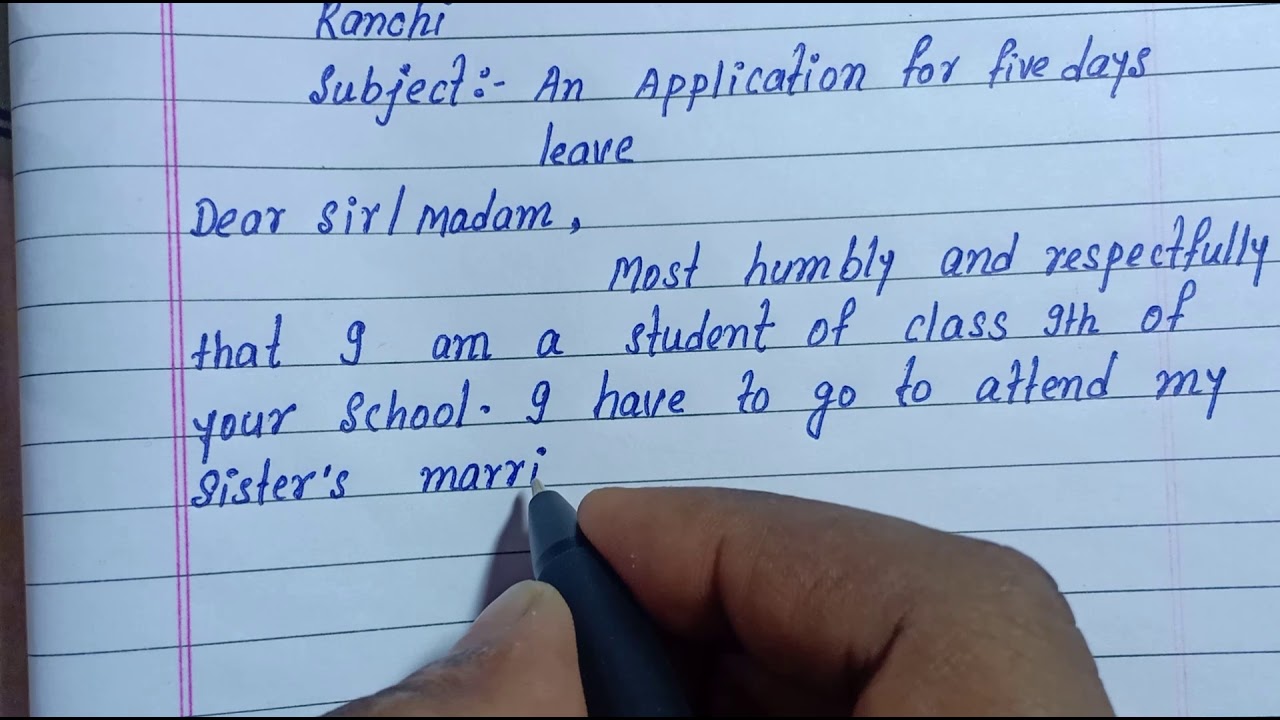 Ranchi
Subject:- An Application for five days
leave
Dear Sir/Madam,
Most humbly and respectfully
that I am a student of class 9th of
your School. I have to go to attend my
Sister's marri